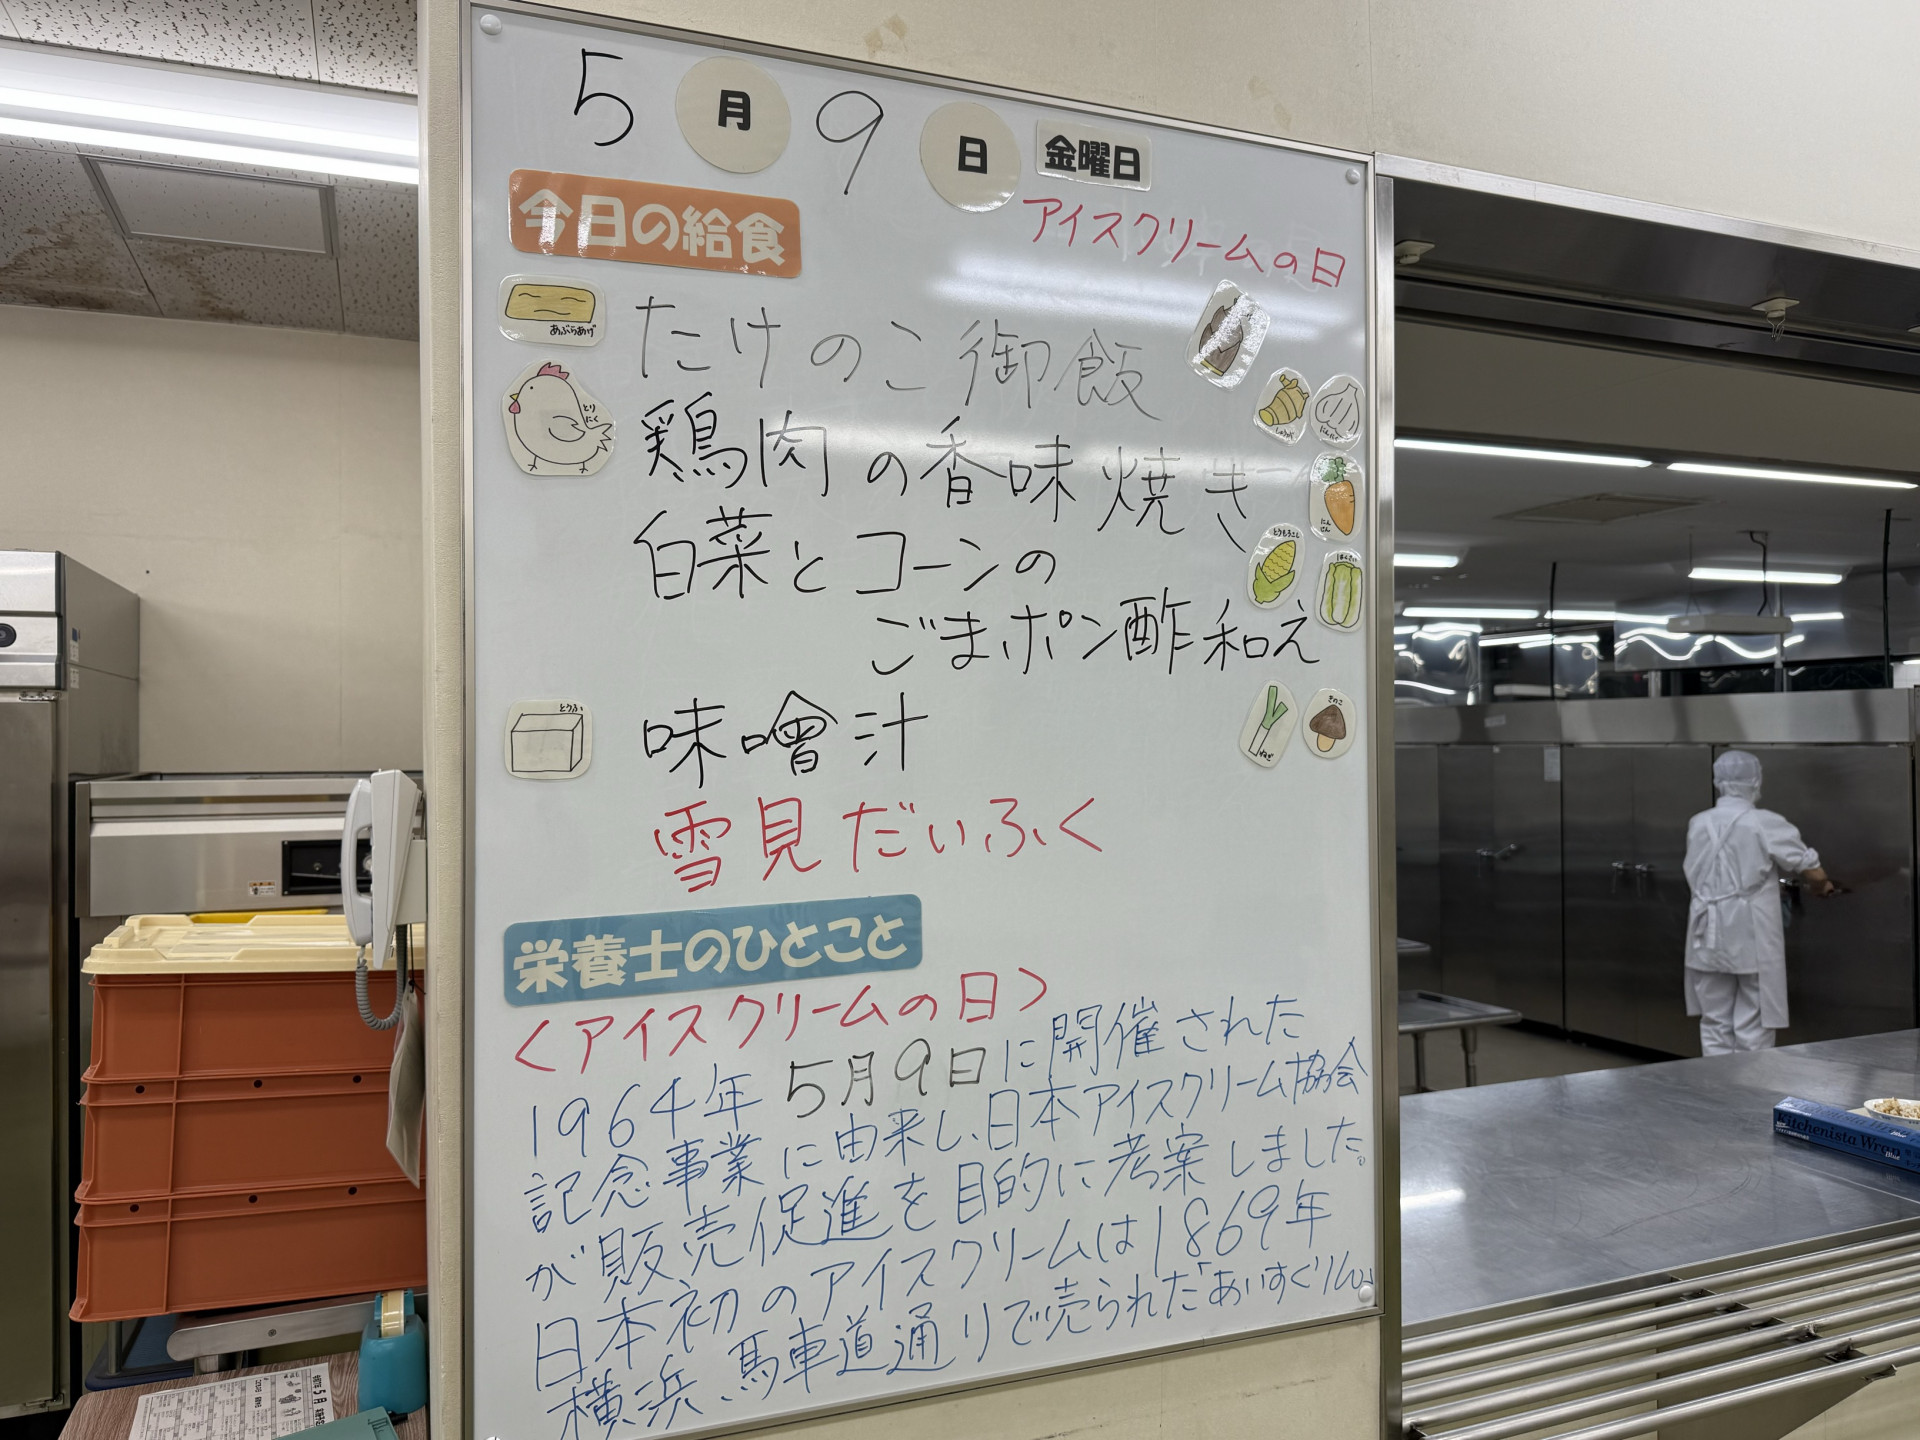 5月9日 金曜日
今日の給食
アイスクリームの日
あぶらあげ
たけのこ御飯
とりにく
しょうが
にんにく
鶏肉の香味焼き
にんじん
白菜とコーンの
とうもろこし
はくさい
ごまポン酢和え
とうふ
味噌汁
ねぎ
きのこ
雪見だいふく
栄養士のひとこと
<アイスクリームの日>
1964年5月9日に開催された
記念事業に由来し、日本アイスクリーム協会
が販売促進を目的に考案しました。
日本初のアイスクリームは1869年
横浜、馬車道通りで売られた「あいすくりん」
Kitchenista Wrap
Blue
5月